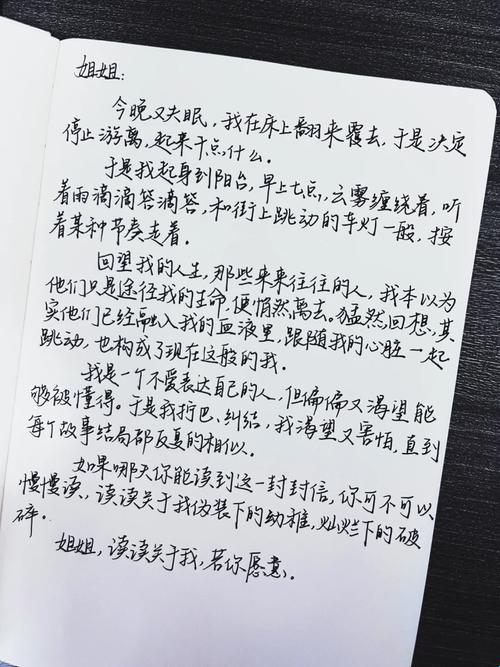 姐姐:
今晚又失眠，我在床上翻来覆去，于是决定
停止游离，起来干点什么。
于是我起身到阳台，早上七点，云雾缠绕着，听
着雨滴滴答滴答，和街上跳动的车灯一般，按
着某种节奏走着。
回望我的人生，那些来来往往的人，我本以为
他们只是途径我的生命，便悄然离去。猛然回想，其
实他们已经融入我的血液里，跟随我的心脏一起
跳动，也构成了现在这般的我。
我是一个不爱表达自己的人，但偏偏又渴望能
够被懂得。于是我拧巴、纠结，我渴望又害怕，直到
每个故事结局都反复的相似。
如果哪天你能读到这一封封信，你可不可以
慢慢读，读读关于我伪装下的幼稚，灿烂下的破
碎。
姐姐，读读关于我，若你愿意。